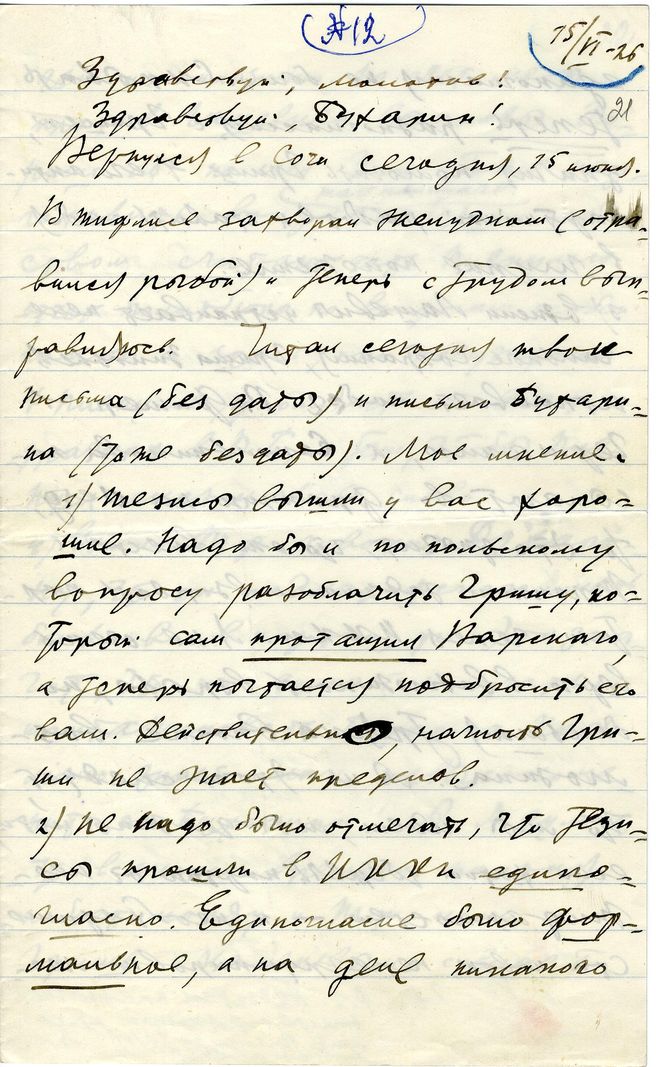 №12
15/VI-26
21
Здравствуй, Молотов!
Здравствуй, Бухарин!
Вернулся в Сочи сегодня, 15 июня.
В Тифлисе захворал желудком (отра-
вился рыбой) и теперь с трудом вып-
равляюсь. Читал сегодня твои
письма (без даты) и письмо Бухари-
на (тоже без даты). Мое мнение.
1) Тезисы вышли у вас хоро-
шие. Надо бы и по польскому
вопросу разоблачить Гришу, ко-
торый сам протащил Варского,
а теперь пытается подбросить его
вам. Действительно, наглость Гри-
ши не знает пределов.
2) Не надо было отмечать, что тези-
сы прошли в ИККИ едино-
гласно. Единогласие было фор-
мальное, а на деле никакого